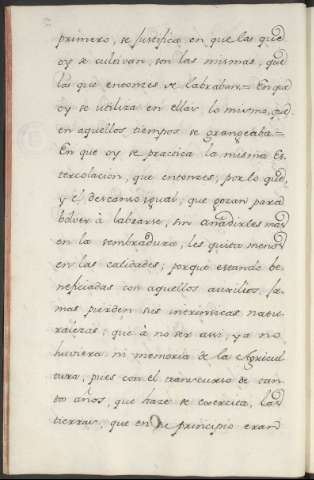 primero, se justifica en que las que
oy se cultivan, son las mismas, que
las que entonzes se labraban.= En que
oy se utiliza en ellas lo mismo, que
en aquellos tiempos se grangeaba=
En que oy se practica la misma Es
tercolacion, que entonzes; por lo que,
y el descanso igual, que gozan para
bolver à labrarse, sin añadirles mas
en la sembradura, les quita menos
en las calidades; porque estando be
neficiadas con aquellos auxilios, ja
mas pierden sus intrinsicas natu
ralezas; que à no ser assi, ya no
huviera ni memoria de la Agricul
tura, pues con el transcurso de tan
tos años, que haze se exercita, las
tierras, que en su principio eran